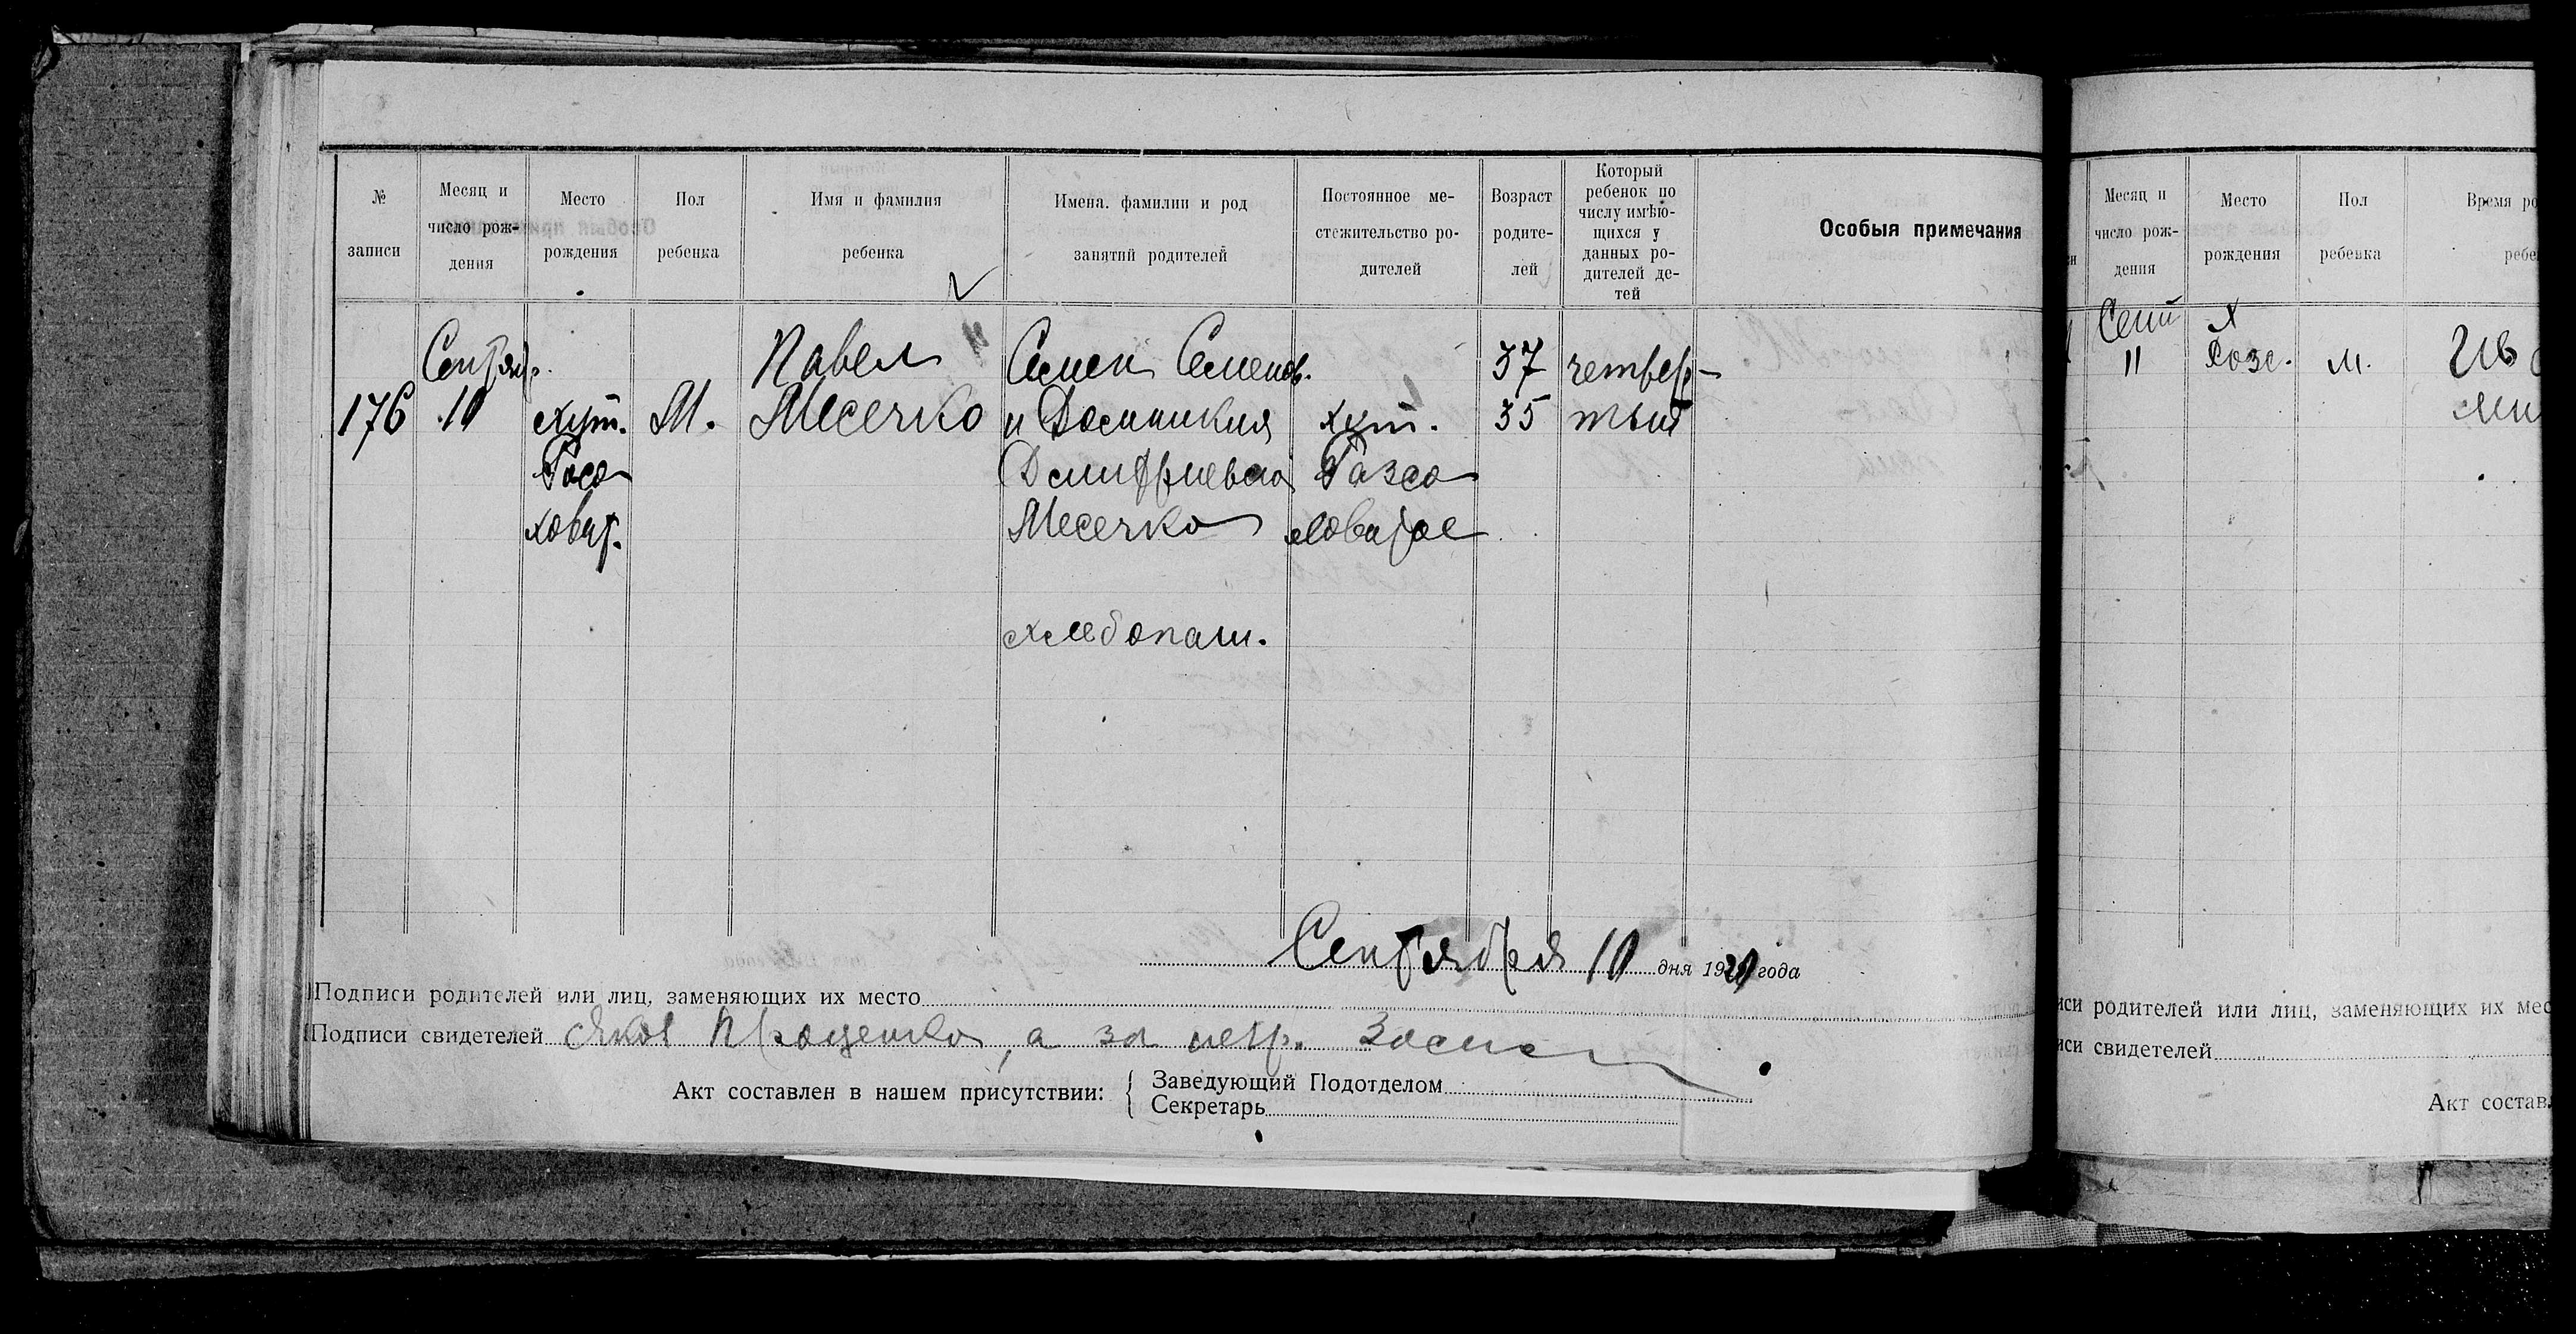 № записи
Месяц и число рож-дения
Место рождения
Пол ребенка
Имя и фамилия ребенка
Имена. фамилии и род занятий родителей
Постоянное ме-стожительство ро-дителей
Возраст родите-лей
Который ребенок по числу имѣю-щихся у данных ро-дителей де-тей
Особыя примечания
176
Сентяб.
10
хут.
М.
Павел
Месечко
Семен Семенов.
и Домникия
Дмитриевна
Месечко
хлебопаш.
хут.
37
35
четвер-
тый
Сентября 10 дня 1920 года
Подписи родителей или лиц, заменяющих их место
Подписи свидетелей Яков Проценко, а за негр.
Акт составлен в нашем присутствии:
Заведующий Подотделом
Секретарь
Месяц и число рож-дения
Место рождения
Пол ребенка
Время ро
ребе
11
м.
иси родителей или лиц, заменяющих их мес
иси свидетелей
Акт состав